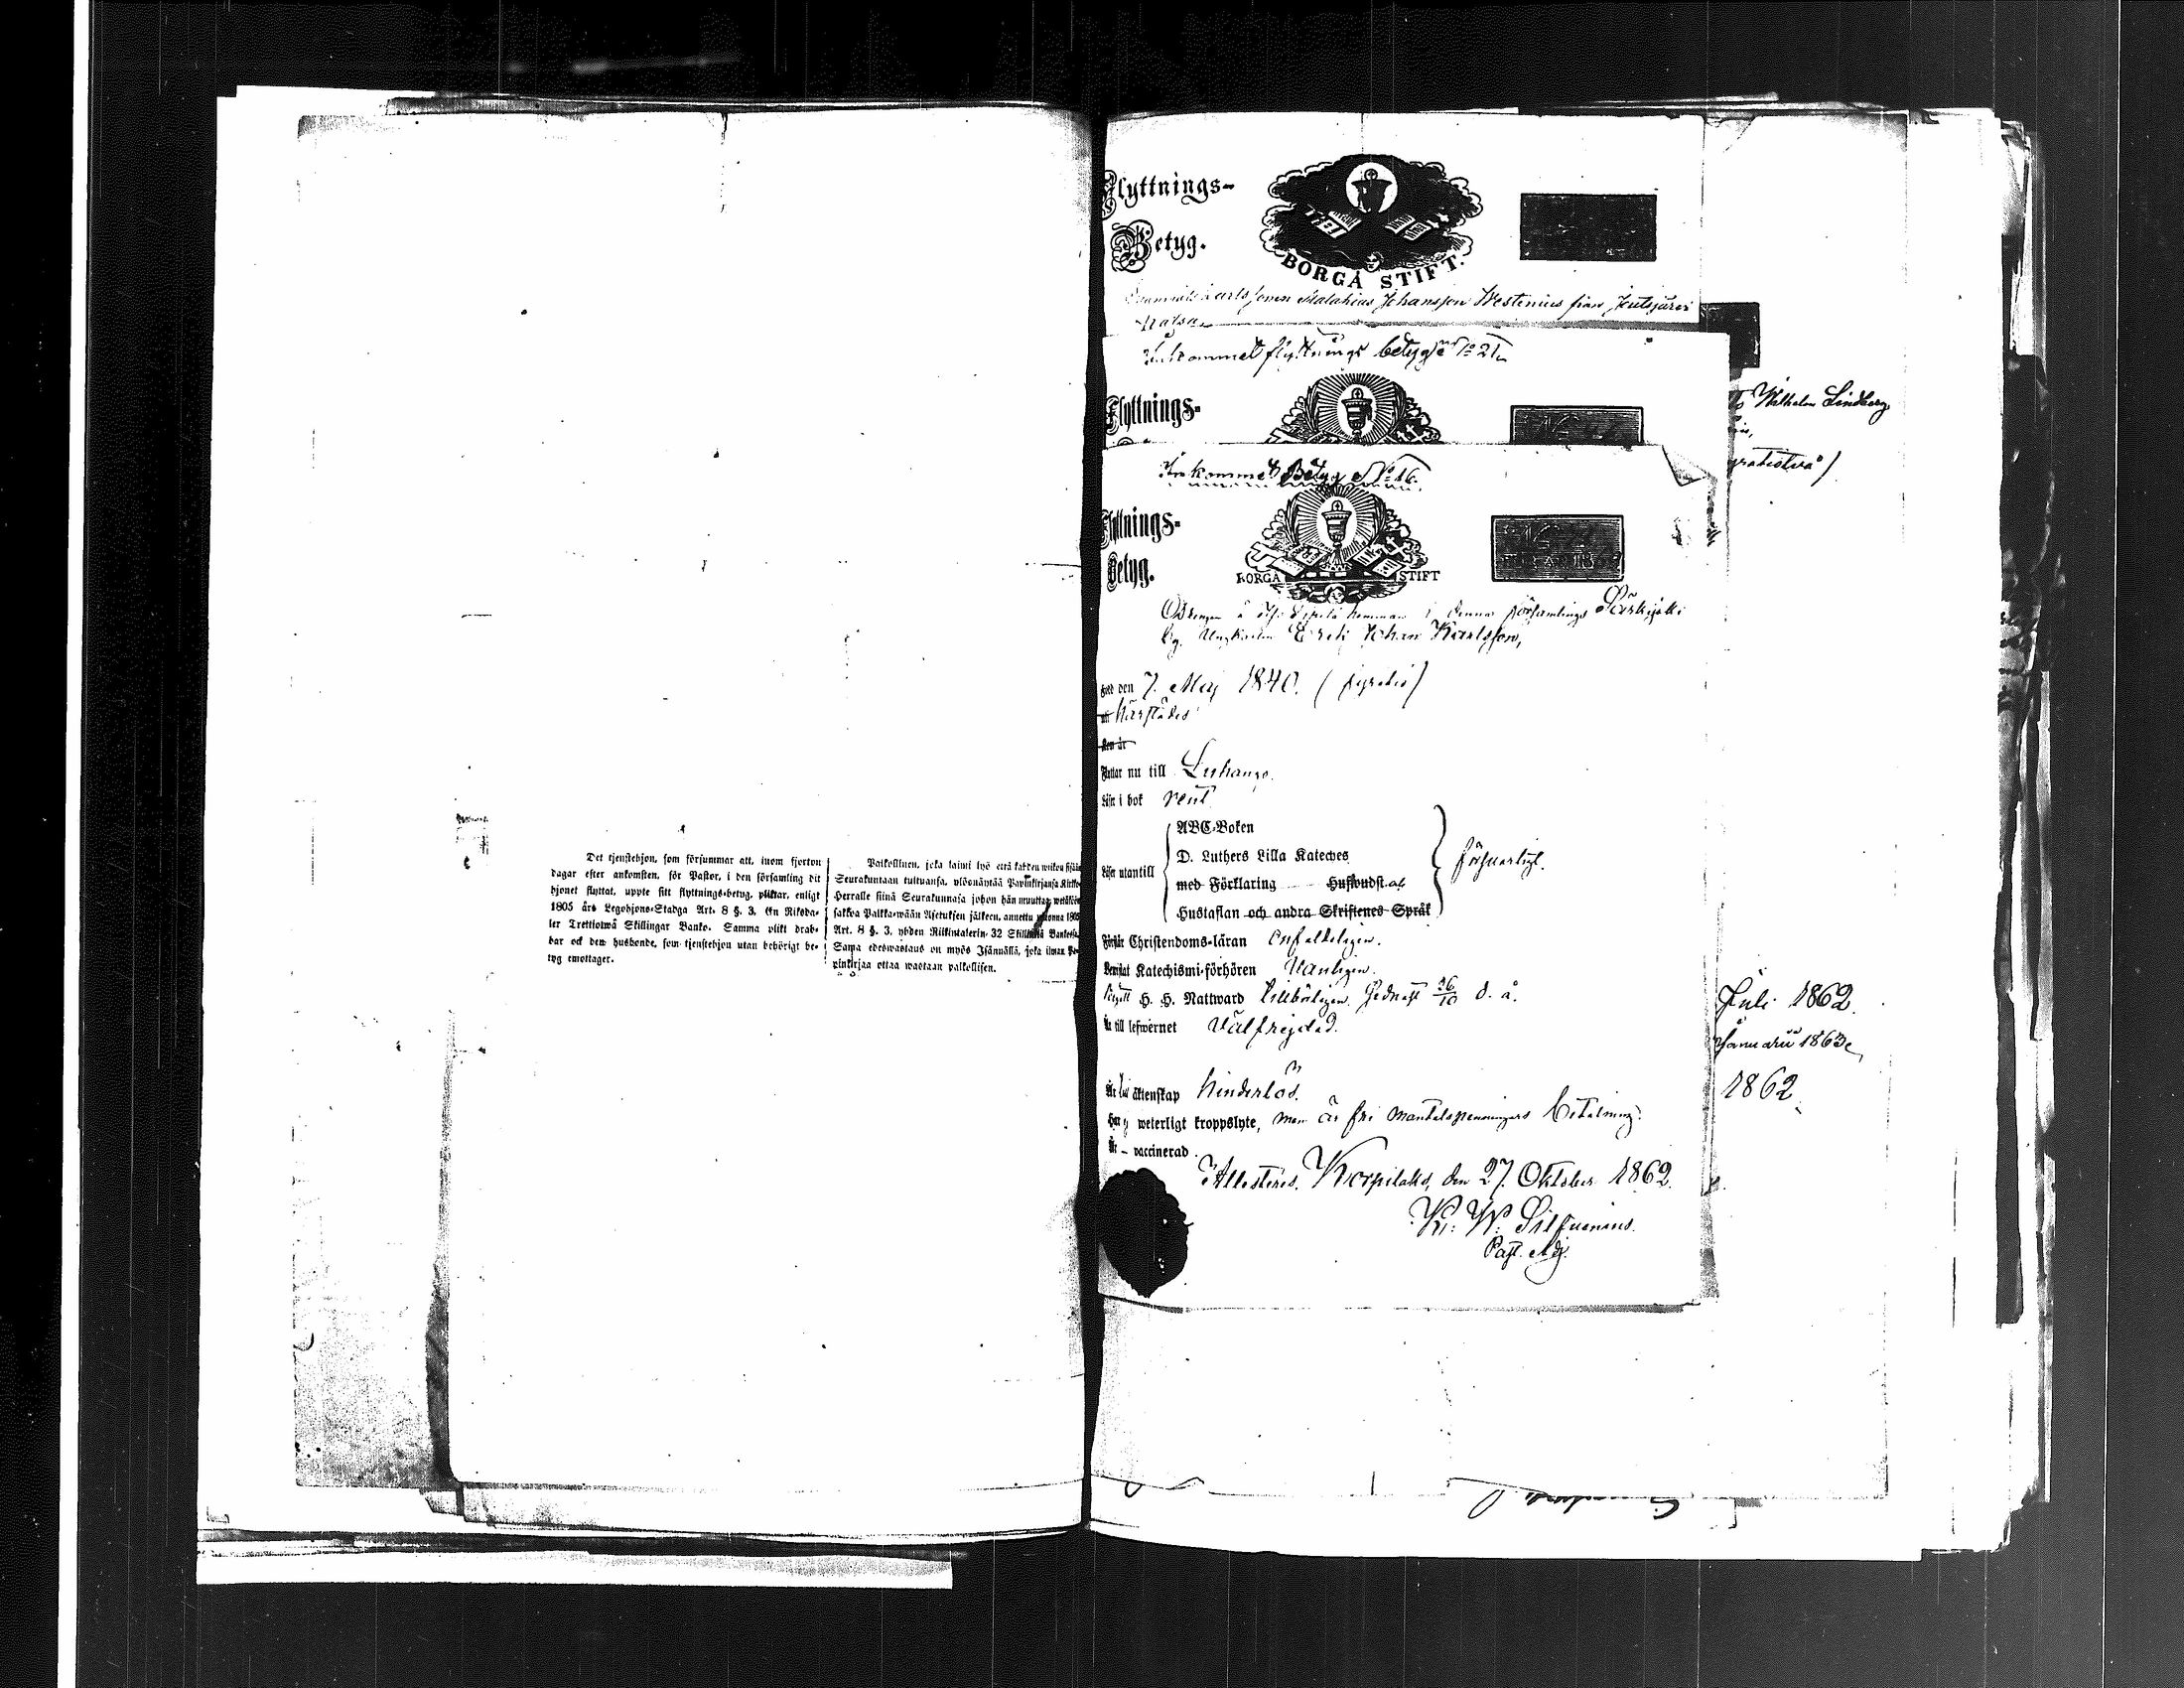 Det tjenstehjon, som försummar att, inom fjorton
dagar efter ankomsten, för Pastor, i den församling dit
hjonet flyttat, uppte sitt flyttnings-betyg, pliktar, enligt
1805 års Legohjons-Stadga Art. 8 §. 3, En Riksda-
ler Trettiotwå Skillingar Banko. Samma plikt drab-
bar ock den husbonde, som tjenstehjon utan behörigt be-
tyg emottager.
Palkollinen, joka laimi lyö että kahden wiikon sisään
Seurakuntaan tultuansa, ylösnäyttää Papinkirjansa Kirkko-
Herralle siinä Seurakunnasa johon hän muuttaa,
sakkoa Palkka-wään Asetuksen jälkeen, annettu wuonna 1805
Art. 8 §. 3, yhden Riikintalerin 32 Skillinkiä Bankosa.
Sama edeswastaus on myös Isännällä, joka ilman Pa-
pinkirjaa ottaa wastaan palkollisen.
Flyttnings-
Betyg.
BORGÅ STIFT.
Johansson Westenius från Joutsjärvi
Inkommet flyttnings betyg № 21
Flyttnings-
Wilhelm Lindberg
Inkommet Betyg № 16.
Flyttnings-
Betyg.
BORGÅ STIFT
Drengen å hemman i denna församlings
by, Ungkarlen Erik Johan Karlsson,
född den 7. Maj 1840. (fyratio)
härstädes
Flyttar nu till Luhango.
Läser i bok rent
ABC-Boken
D. Luthers Lilla Kateches
med Förklaring Hufwudst.
Hustaflan och andra Skriftenes Språk
Läser utantill
försvarligt.
Förstår Christendoms-läran enfaldeligen.
Bewistat Katechismi-förhören Vanligen.
Begått H. H. Nattward tillbörligen. Sednast 26/10 d. å.
Är till lefwernet Välfrejdad.
Är till äktenskap hinderlös.
Har ej weterligt kroppslyte, men är fri mantalspenningars betalning.
Är vaccinerad.
Attesteres. Korpilaks, den 27. Oktober 1862.
K: W: Silfvenius.
Past. Adj.
Juli 1862.
Januarii 1863
1862